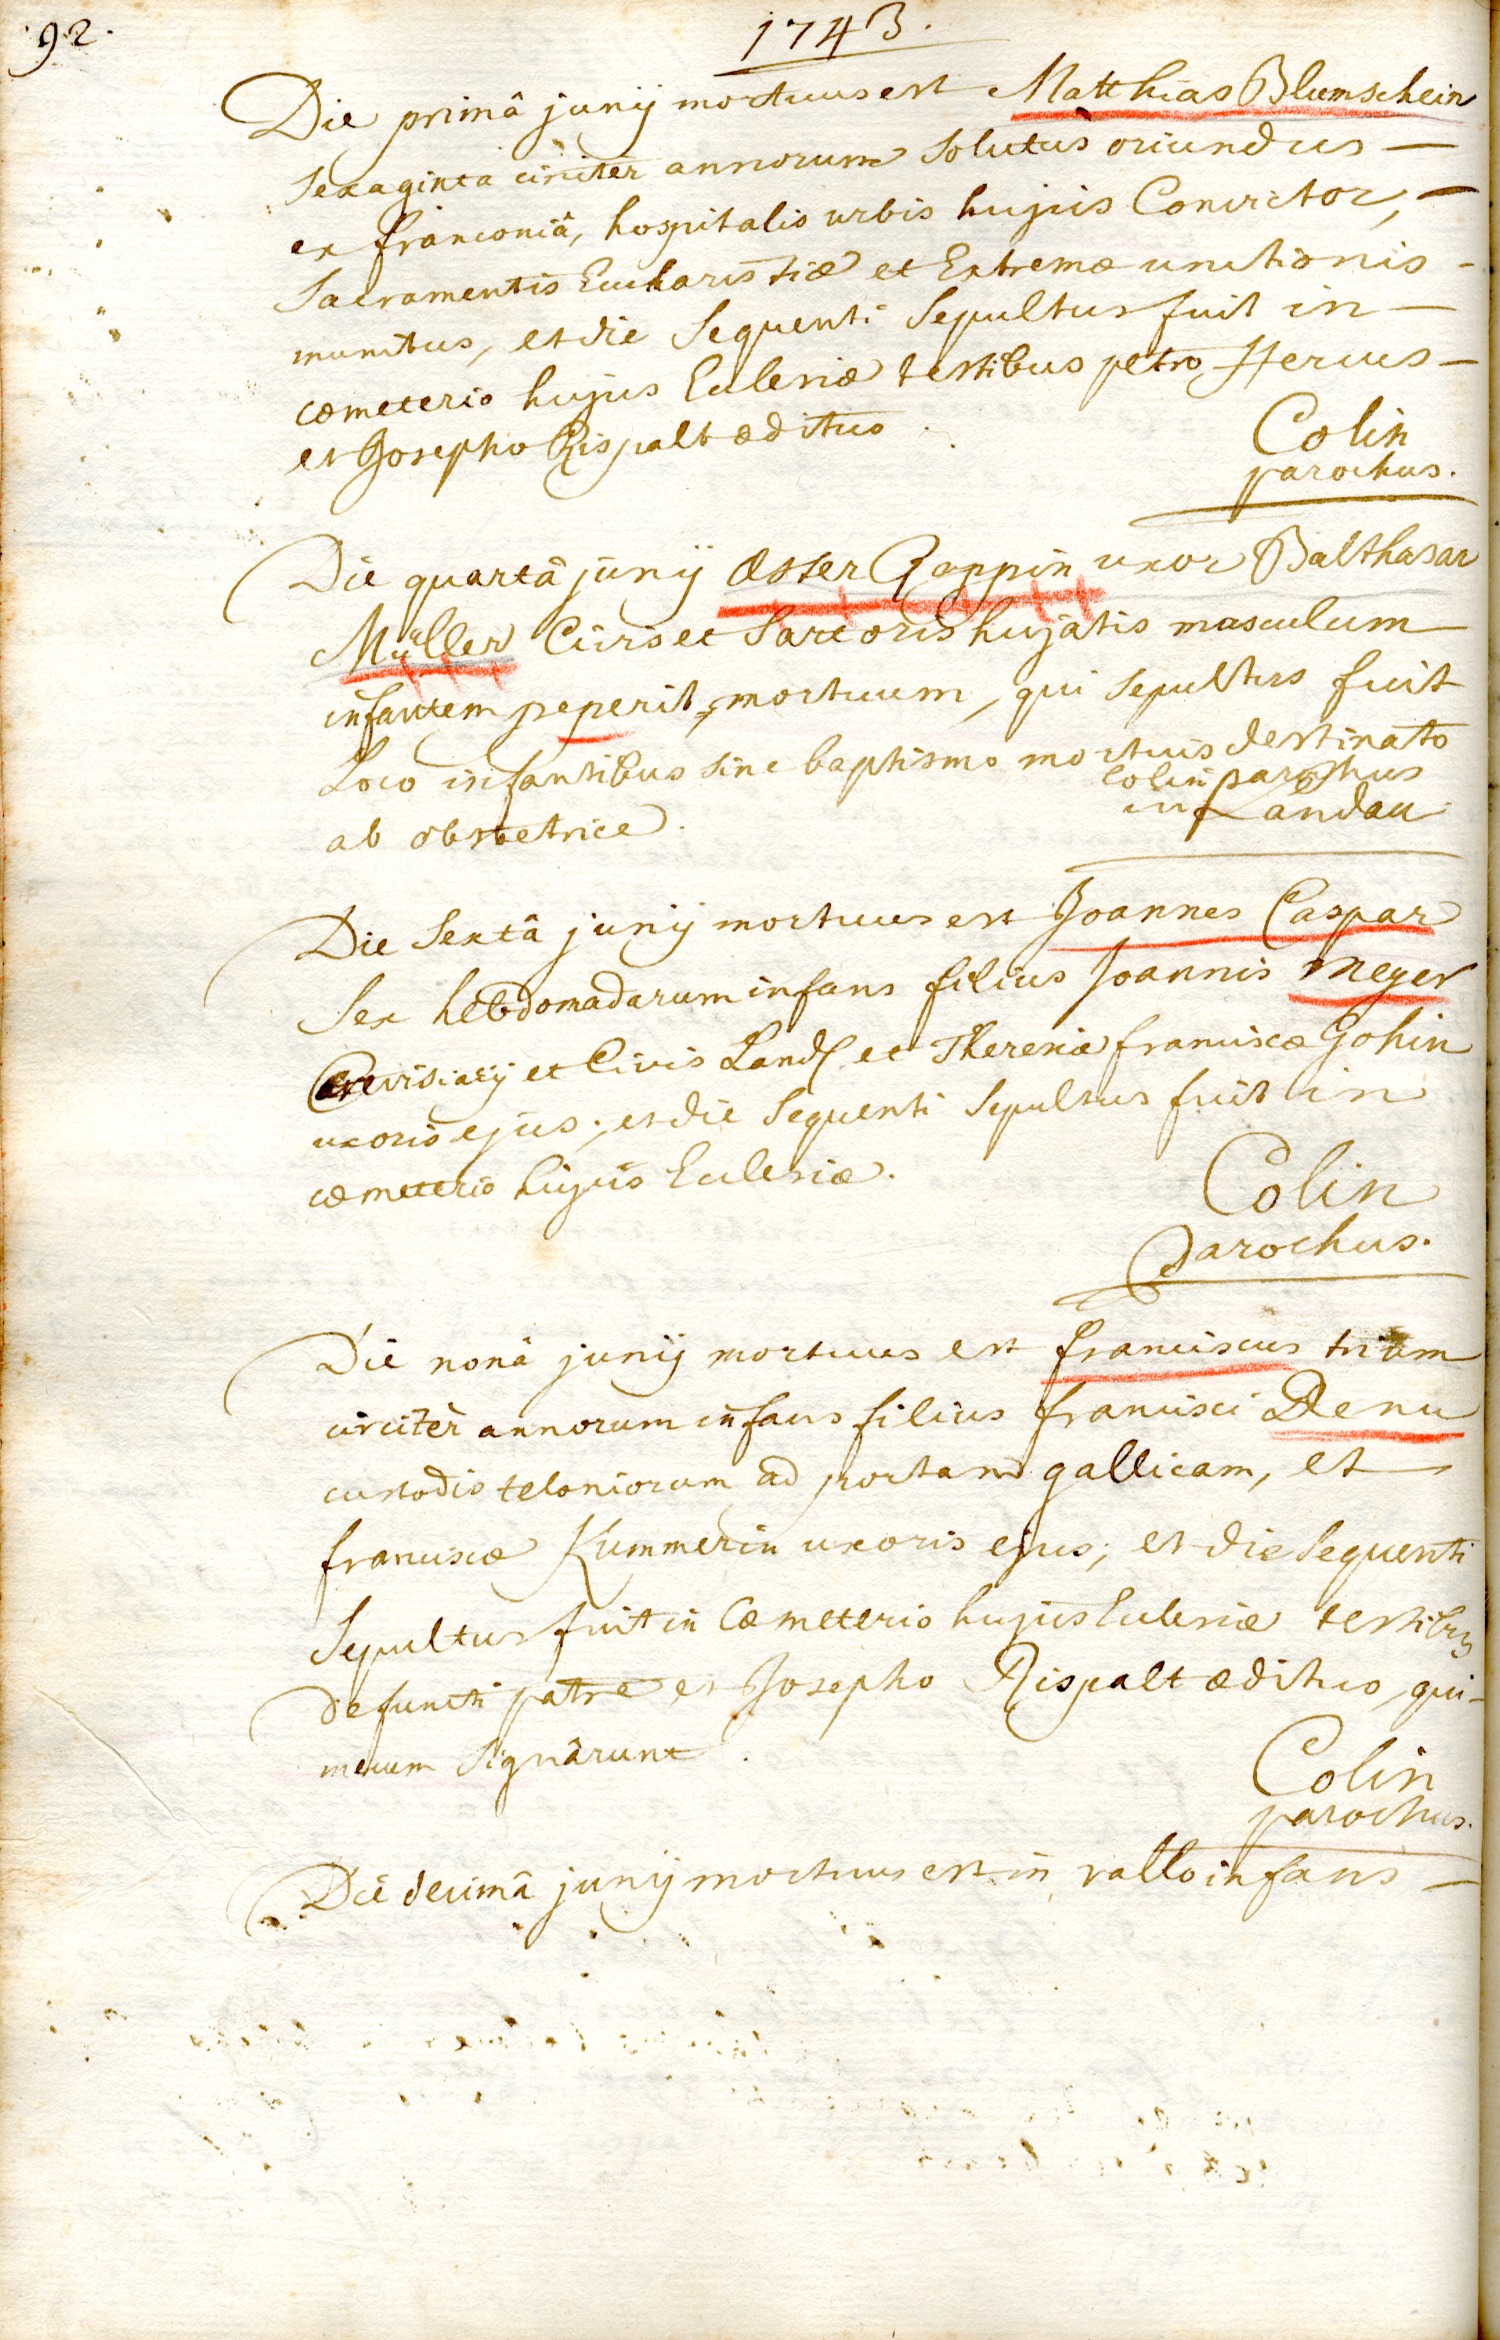 92.
1743.
Die primâ junij mortuus est Matthias Blumschein
sexaginta circiter annorum solutus oriundus —
ex franconiâ, hospitalis urbis hujus Convictor, —
Sacramentis Eucharistiæ et Extremæ unctionis -
munitus, et die sequenti sepultus fuit in —
cœmeterio hujus Ecclesiæ testibus petro Hervus —
et Josepho Rispalt ædituo.
Colin
parochus.
Die quartâ junij Ester Rappin uxor Balthasar
Müller Civis et Sartoris hujatis masculum
infantem peperit mortuum, qui sepultus fuit
Loco infantibus sine baptismo mortuis destinato
ab obstetrice.
Colin parochus
in Landau
Die sextâ junij mortuus est Joannes Caspar
sex hebdomadarum infans filius Joannis Meyer
Cerevisiarij et Civis Land. et Theresiæ franciscæ Gohin
uxoris ejus; et die sequenti sepultus fuit in
cœmeterio hujus Ecclesiæ.
Colin
Parochus.
Die nonâ junij mortuus est franciscus trium
circiter annorum infans filius francisci Denu
custodis teloniorum ad portam gallicam, et —
franciscæ Kummerin uxoris ejus; et die sequenti
sepultus fuit in Cœmeterio hujus Ecclesiæ testibus
defuncti patre et Josepho Rispalt ædituo, qui -
mecum signârunt.
Colin
parochus.
Die decimâ junij mortuus est in vallo infans —